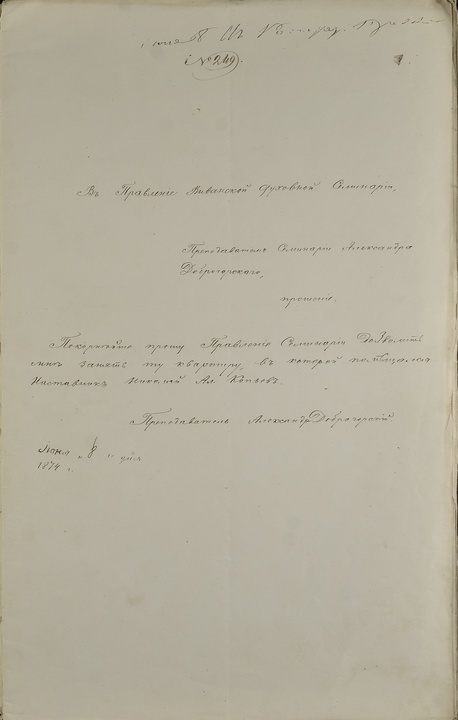 № 249.
Въ Правленіе Виѳанской Духовной Семинаріи,
Преподавателя Семинаріи Александра
Доброгорскаго,
прошеніе.
Покорнѣйше прошу Правленіе Семинаріи дозволить
мнѣ занять ту квартиру, въ которой помѣщался
Наставникъ Николай Ал.
Преподаватель Александръ Доброгорскій
Іюня „8" дня
1874 г.